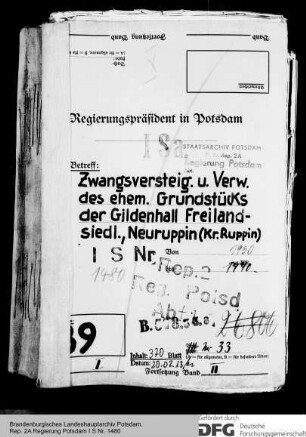 Fortsetzung Band
Regierungspräsident in Potsdam
I Sa.
STAATSARCHIV POTSDAM
Rep. 2A
Regierung Potsdam
Betreff:
Zwangsversteig. u. Verw.
des ehem. Grundstücks
der Gildenhall Freiland-
siedl., Neuruppin (Kr. Ruppin)
I S Nr.
Von
1930
1480
Rep. 2
1940
Reg. Potsd
Abt.
39
33
Inhalt: 320 Blatt
Datum: 20.02.
I.
Fortsetzung Band II
Brandenburgisches Landeshauptarchiv Potsdam,
Rep. 2A Regierung Potsdam I S Nr. 1480
Gefördert durch
DFG Deutsche
Forschungsgemeinschaft